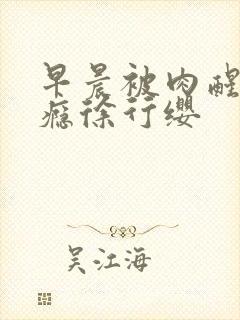 早晨被肉醒
瘾徐行缨
吴江海